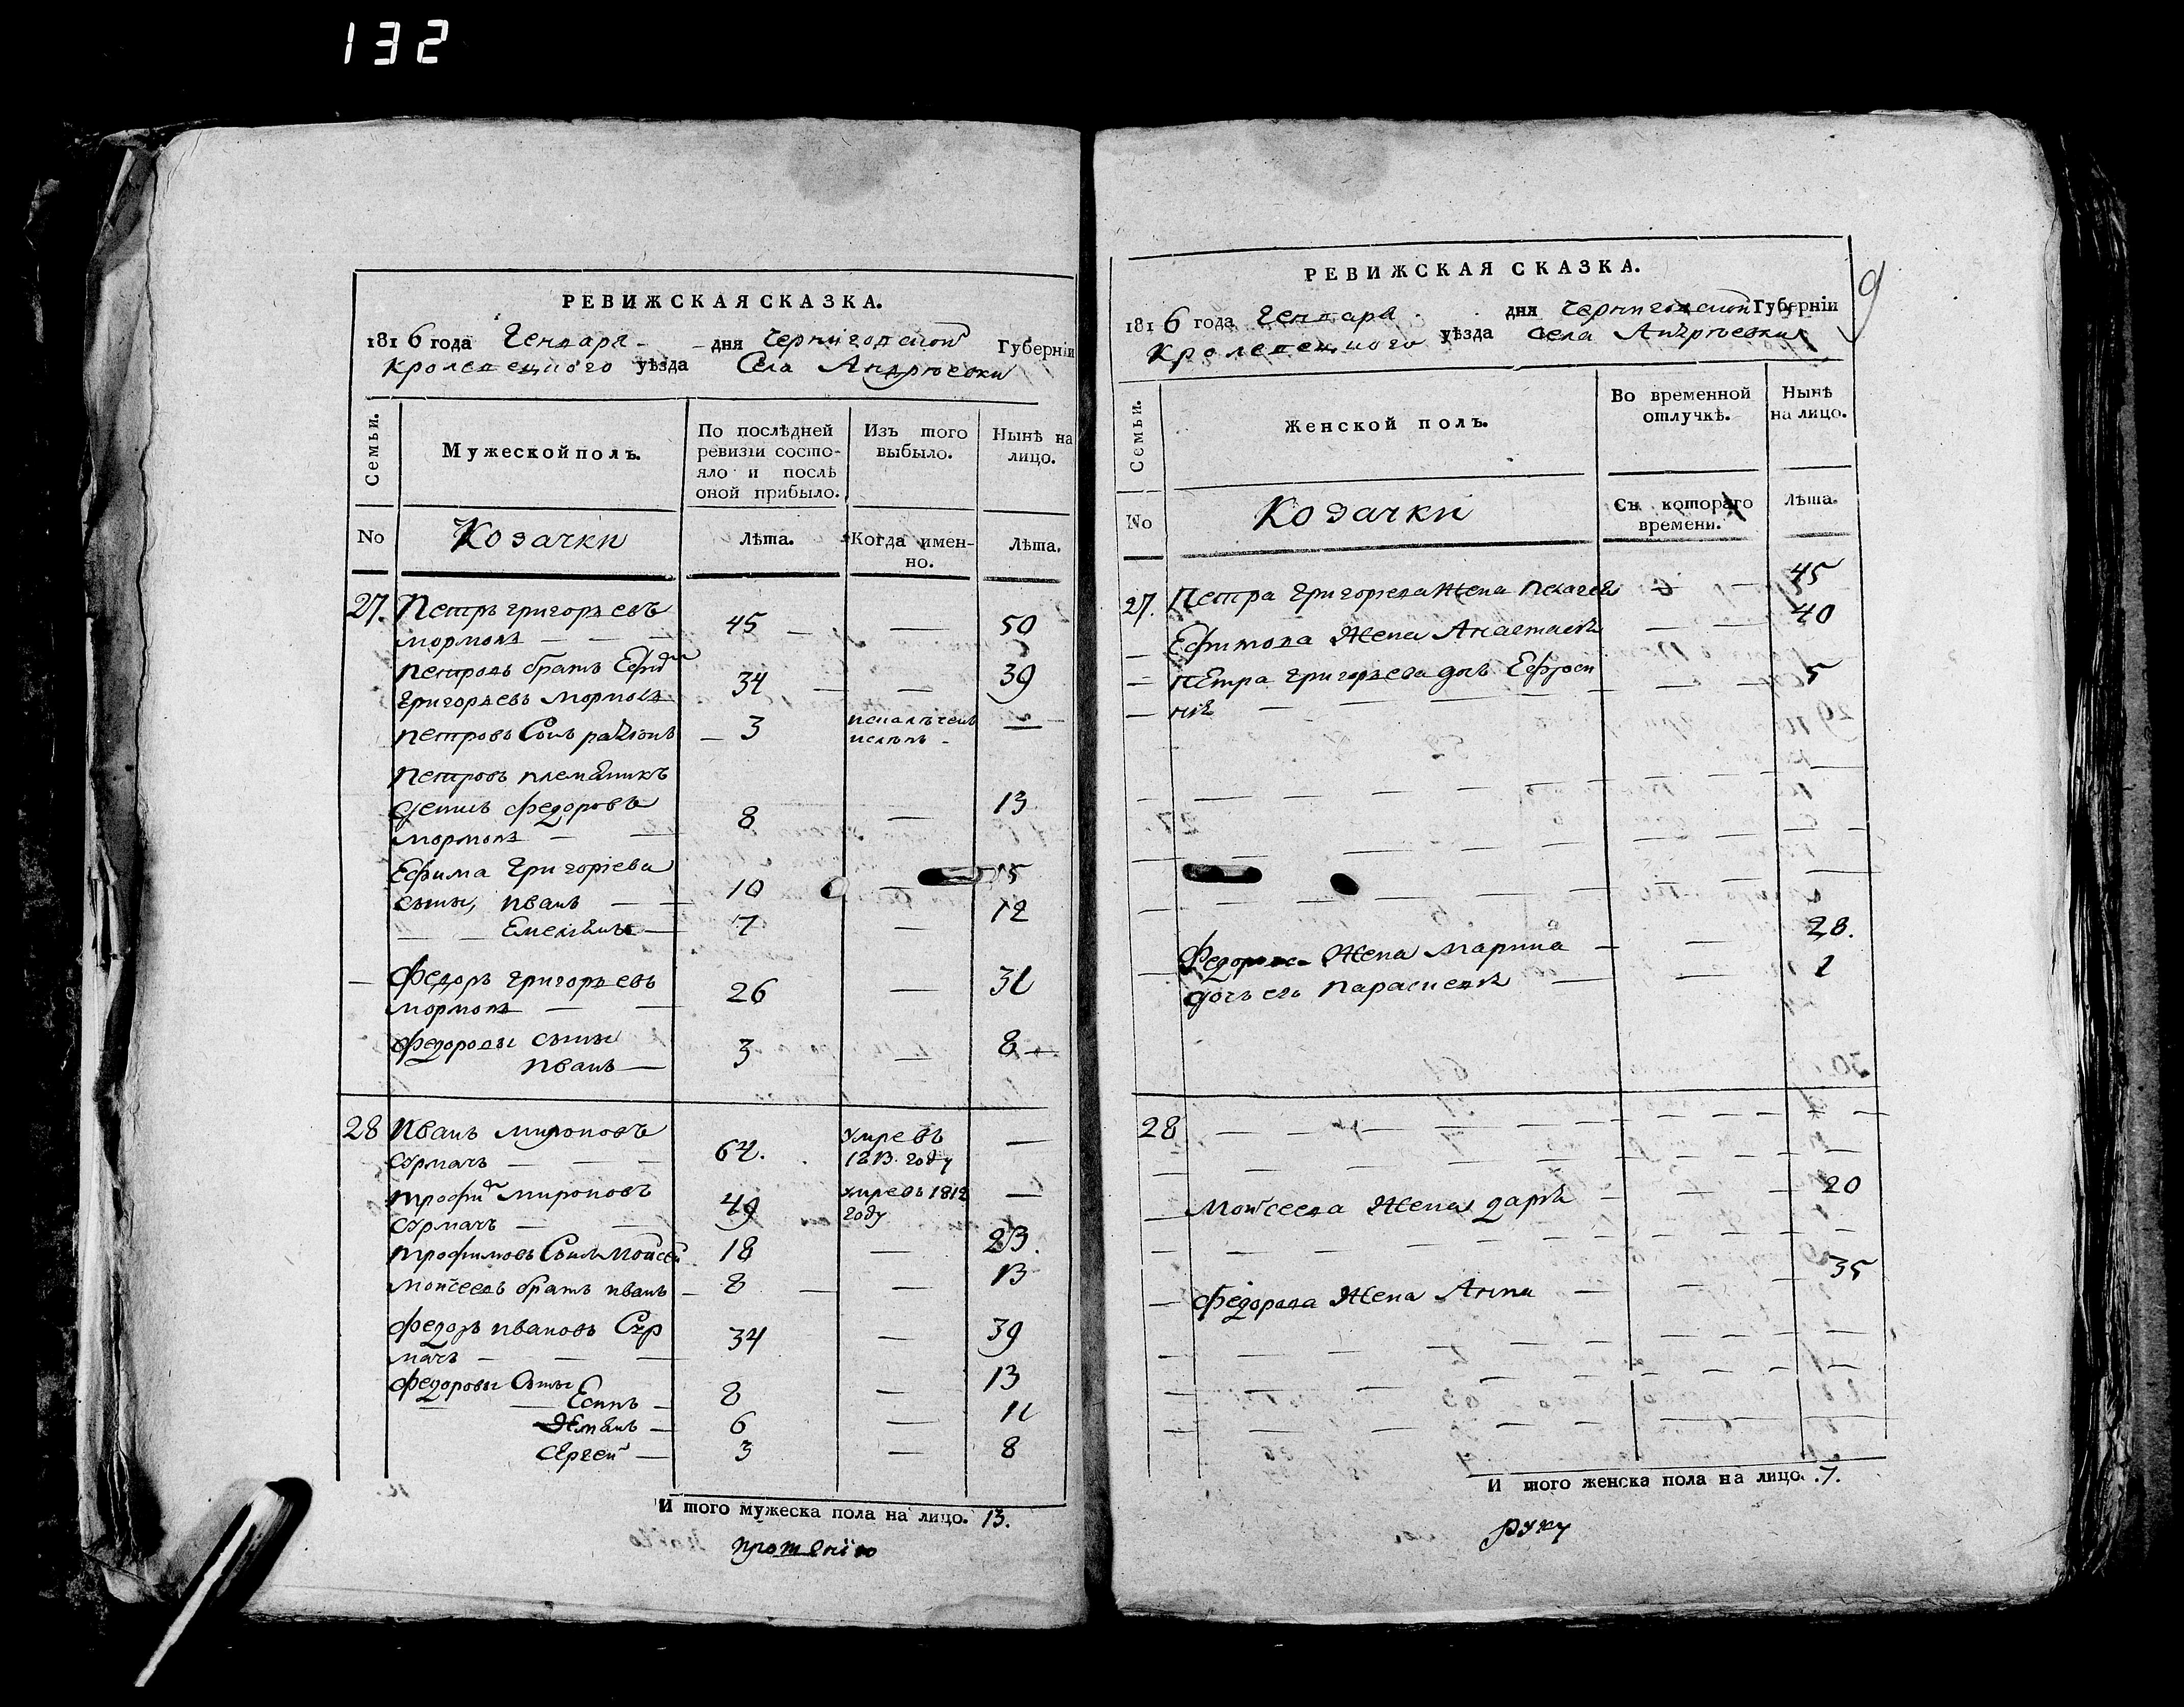 132
РЕВИЖСКАЯ СКАЗКА.
1816 года Генваря дня Черниговской Губерніи
Кролевецкого уѣзда Села Андреевки
Семьи.
Мужеской полъ.
По послѣдней ревизіи состояло и послѣ оной прибыло.
Изъ того выбыло.
Нынѣ на лицо.
No
Козачки
Лѣта.
Когда именно.
Лѣта.
27. Петръ григорьевъ
45 — 50
Петровъ братъ Ефим
григорьевъ
34 — 39
Петровъ Сынъ
3 —
Петровъ племянникъ
федоровъ
8 — 13
Ефима Григоріева
сыны, иванъ 10 — 15
Емелянъ 7 — 12
Федоръ григорьевъ
26 — 31
федоровы сыны
иванъ 3 — 8
28 Иванъ мироновъ
64. умре въ 1813 году —
трофим мироновъ
49 умре въ 1812 году —
трофимовъ Сынъ Мойсей 18 — 23.
мойсеевъ братъ иванъ 8 — 13
федоръ ивановъ
34 — 39
федоровы Сыны
Есипъ 8 — 13
Демянъ 6 — 11
сергей 3 — 8
И того мужеска пола на лицо. 13.
прошенію
9
РЕВИЖСКАЯ СКАЗКА.
1816 года Генваря дня Черниговской Губерніи
Кролевецкого уѣзда Села Андреевки
Семьи.
Женской полъ.
Во временной отлучкѣ.
Нынѣ на лицо.
No
Козачки
Съ котораго времени.
Лѣта.
27. Петра Григориева Жена Пелагея — 45
Ефимова Жена Анастасія — 40
Петра григорьева доч Ефроси
нія — 5
Федорова Жена марина — 28.
дочь ея параскева — 1
28
Мойсеева Жена дарія — 20
Федорова Жена Анна — 35
И того женска пола на лицо. 7.
руку